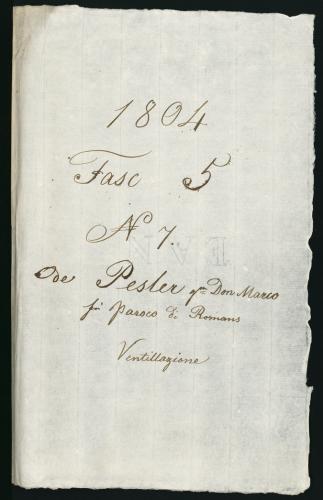 1804
Fasc 5
N 7.
de Pesler qm Don Marco
fù Paroco di Romans
Ventillazione